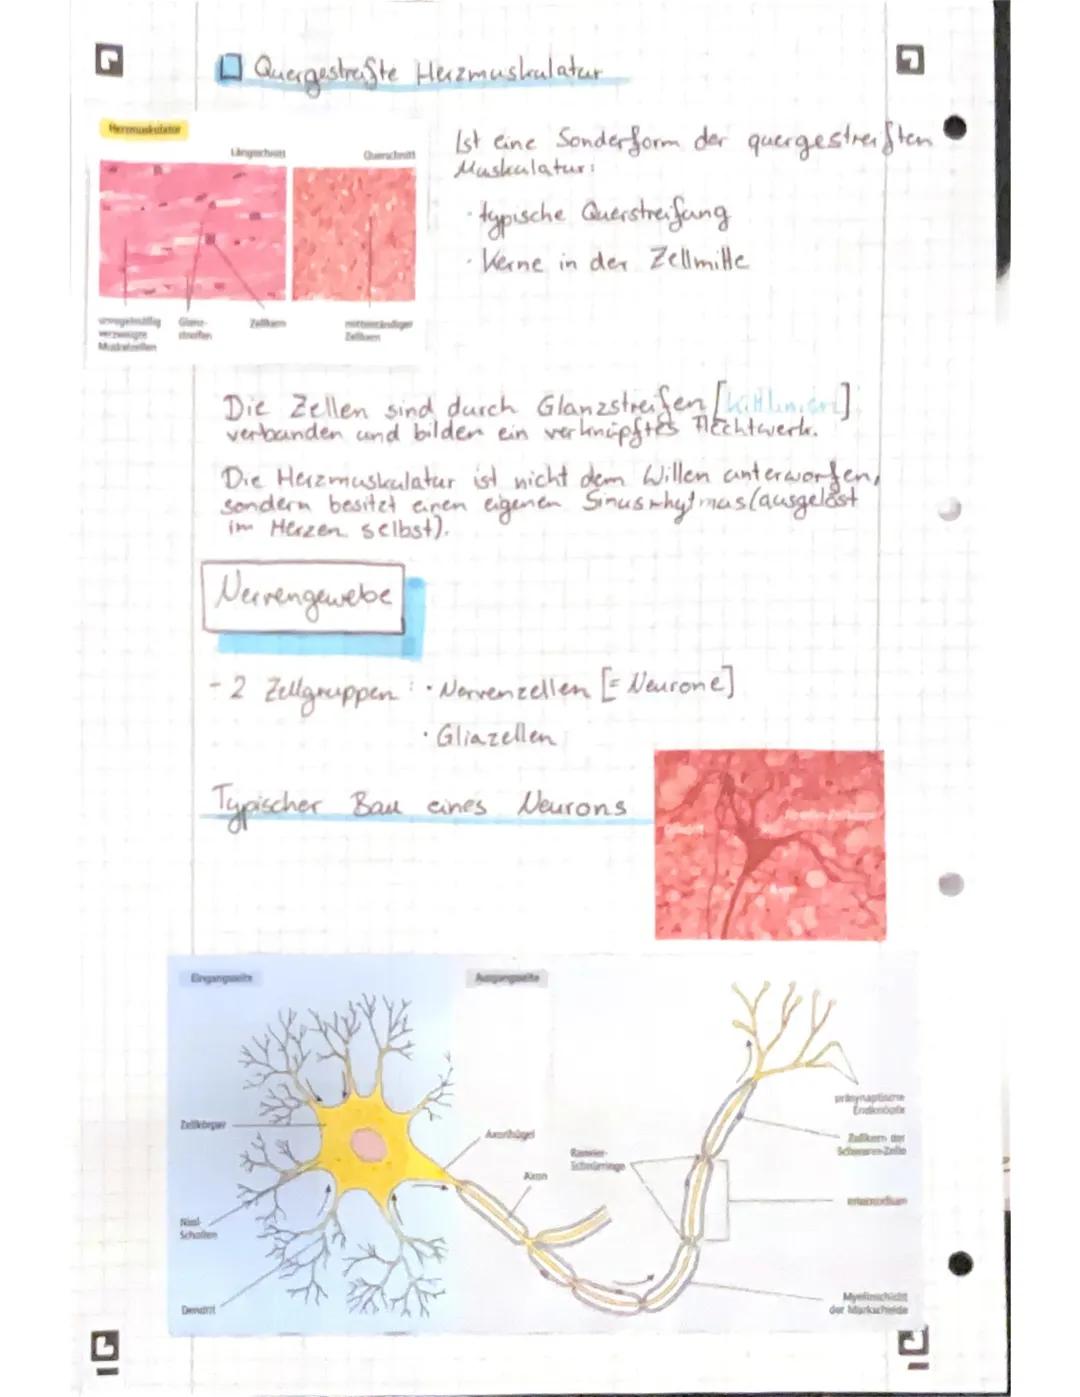 Quergestreifte Herzmuskulatur
Herzmuskulatur
Längsschnitt
Querschnitt
unregelmäßig
verzweigte
Muskelzellen
Glanz-
streifen
Zellkern
mittelständiger
Zellkern
Ist eine Sonderform der quergestreiften
Muskulatur:
· typische Querstreifung
· Kerne in der Zellmitte
Die Zellen sind durch Glanzstreifen [Kittlinien]
verbunden und bilden ein verknüpftes Flechtwerk.
Die Herzmuskulatur ist nicht dem Willen unterworfen,
sondern besitzt einen eigenen Sinusrhytmus (ausgelöst
im Herzen selbst).
Nervengewebe
- 2 Zellgruppen: · Nervenzellen [= Neurone]
· Gliazellen
Typischer Bau eines Neurons
Dendrit
Axon
Eingangsseite
Ausgangsseite
Zellkörper
Nissl-
Schollen
Dendrit
Axonhügel
Axon
Ranvier-
Schnürringe
präsynaptische
Endknöpfe
Zellkern der
Schwann-Zelle
Internodium
Myelinschicht
der Markscheide